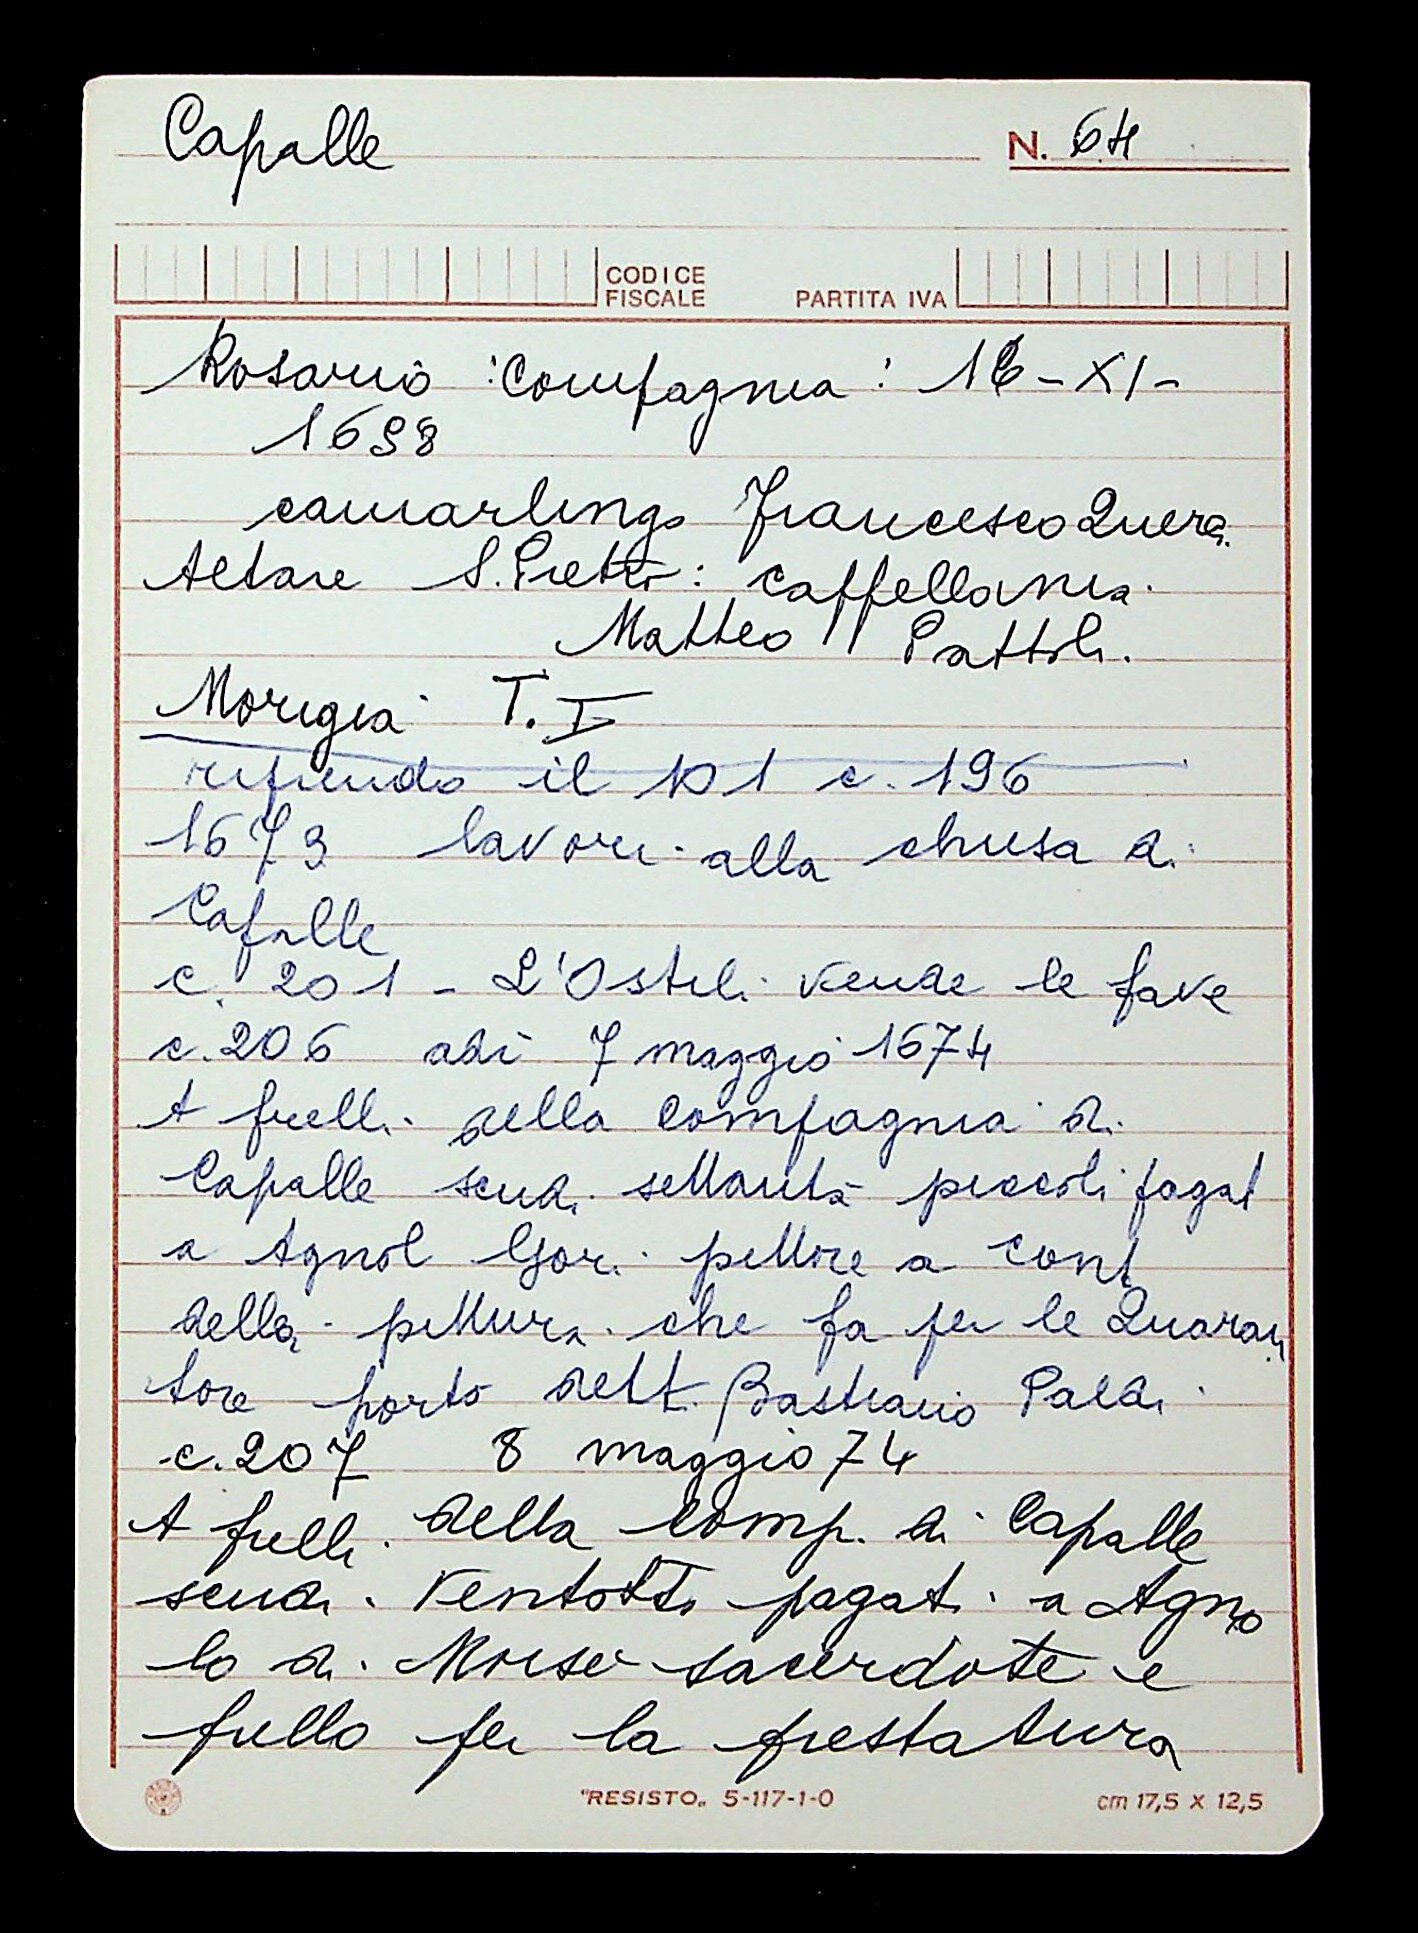 Capalle
N. 64
CODICE
FISCALE
PARTITA IVA
Rosario : Compagnia : 16-XI-
1698
camarlingo Francesco
Altare S. Pietro : cappellania
Matteo Pattoli.
Morigia T. I
riprendo il 101 c. 196
1673 lavori alla chiesa di
Capalle
c. 201 - L'Ostili vende le fave
c. 206 adì 7 maggio 1674
A frelli della Compagnia di
Capalle scudi settanta piccoli pagat
a Agnol Gori pittore a cont
della pittura che fa per le Quaran
tore portò dett. Bastiano Paldi
c. 207 8 maggio 74
A frelli della Comp. di Capalle
scudi ventotto pagati a Agno
lo di Moise sacerdote e
frello per la prestatura
"RESISTO„ 5-117-1-0
cm 17,5 x 12,5